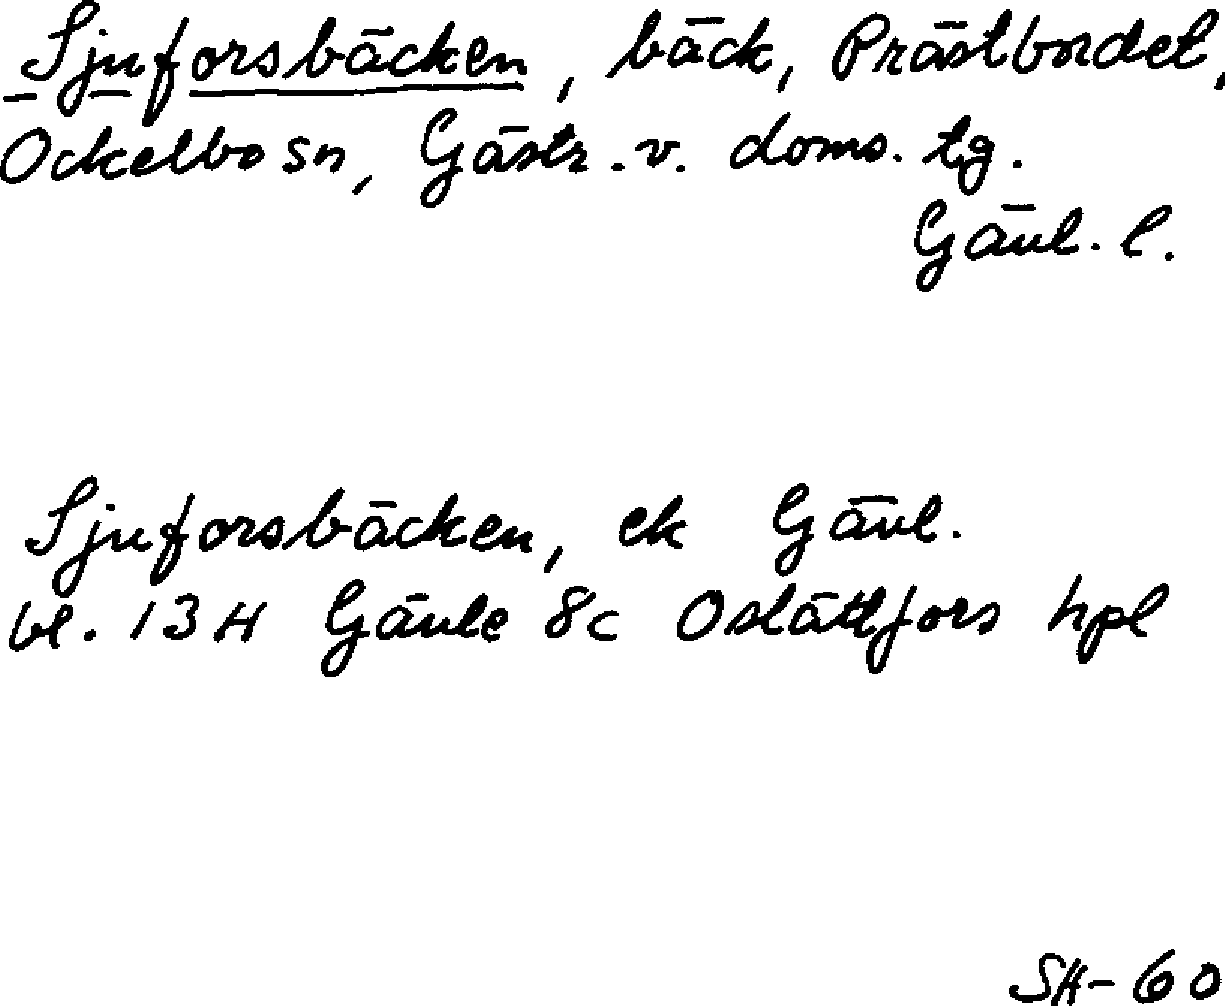 Sjuforsbäcken, bäck, Prästbordet,
Ockelbo sn, Gästr. v. doms. tg.
Gävl. l.
Sjuforsbäcken, ek Gävl.
bl. 13H Gävle 8c Oslättfors hpl
SH-60